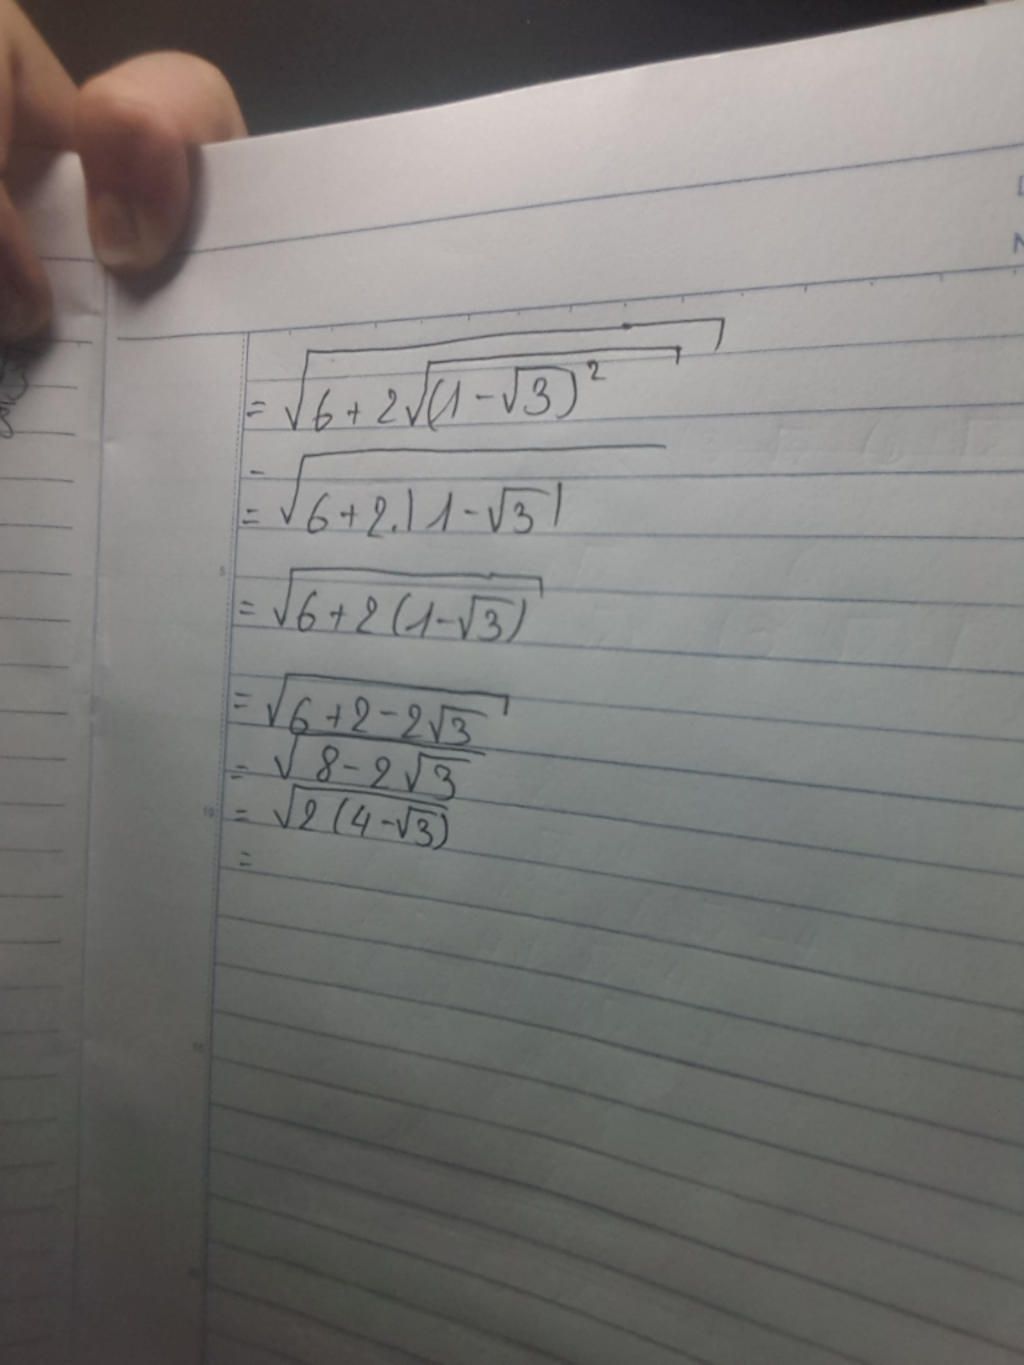 = √(6 + 2√((1 - √3)²))
= √(6 + 2.|1 - √3|)
= √(6 + 2(1 - √3))
= √(6 + 2 - 2√3)
= √(8 - 2√3)
= √(2(4 - √3))
=